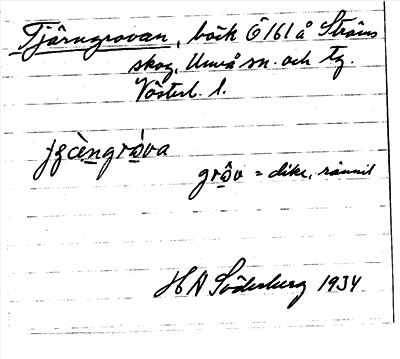 Tjärngrovan, bäck Ö 161 å Ströms
skog, Umeå sn. och tg.
Västerb. l.
grȯ̂v = dike, rännil
H A Söderberg 1934